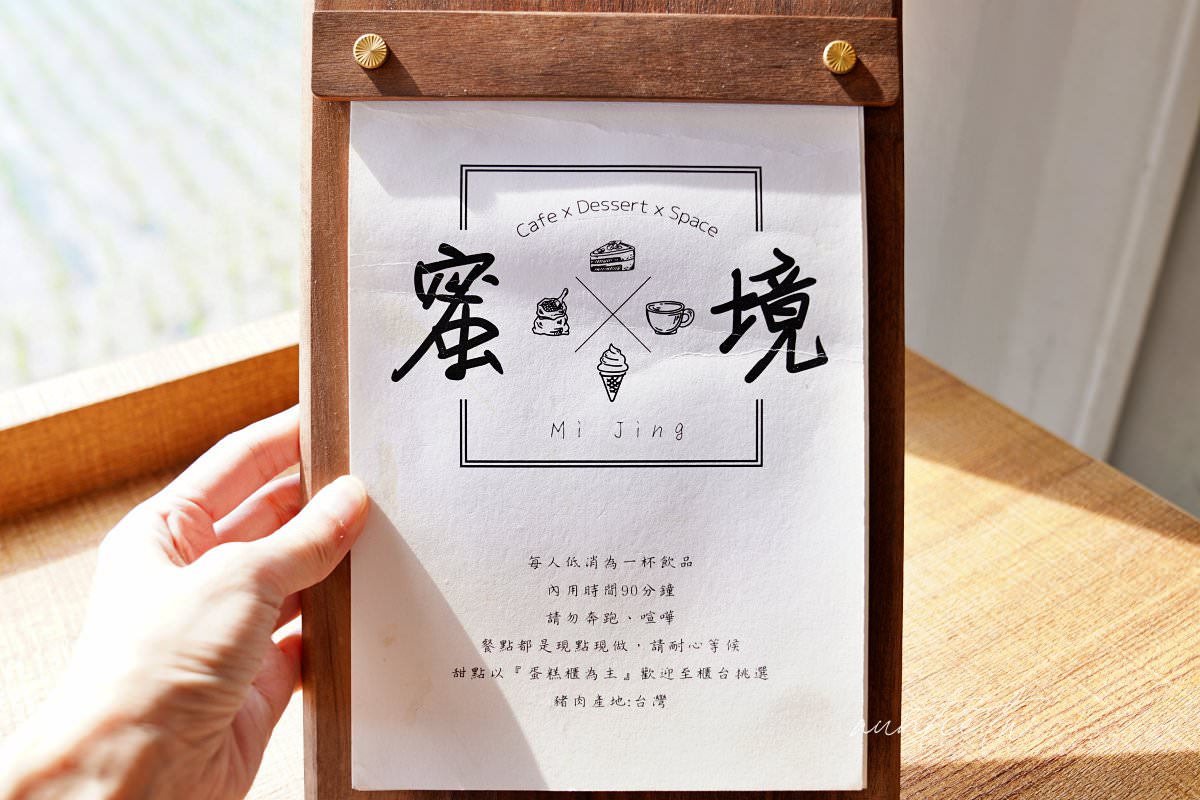 Cafe x Dessert x Space
蜜境
Mi Jing
每人低消為一杯飲品
內用時間90分鐘
請勿奔跑、喧嘩
餐點都是現點現做，請耐心等候
甜點以『蛋糕櫃為主』歡迎至櫃台挑選
豬肉產地:台灣